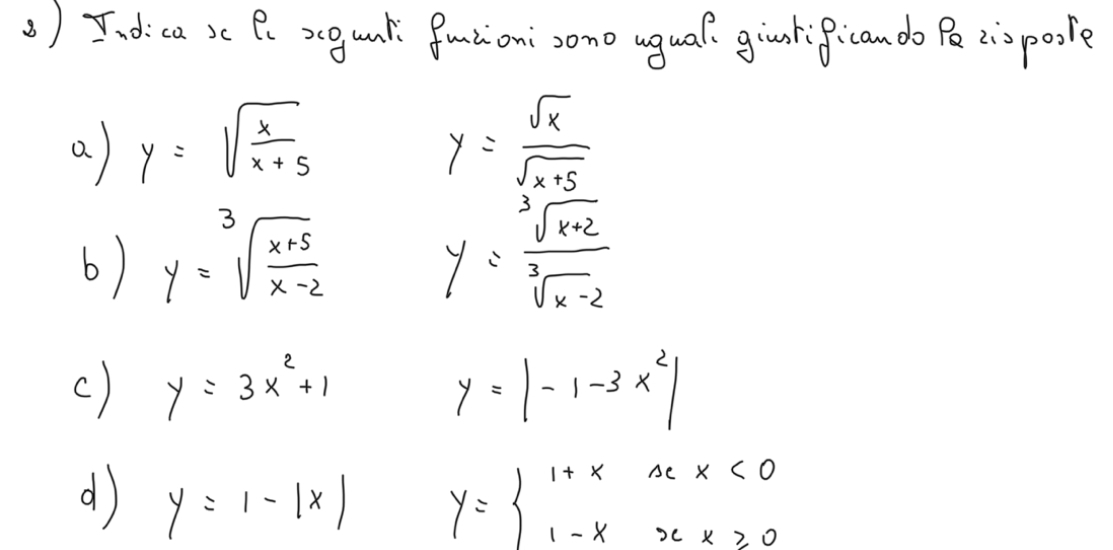 2) Indica se le seguenti funzioni sono uguali giustificando la risposta
a) y = √(x/(x+5))   y = √x/√(x+5)
b) y = ³√((x+5)/(x-2))   y = ³√(x+2)/³√(x-2)
c) y = 3x²+1   y = |-1-3x²|
d) y = 1-|x|   y = { 1+x se x < 0
1-x se x ≥ 0